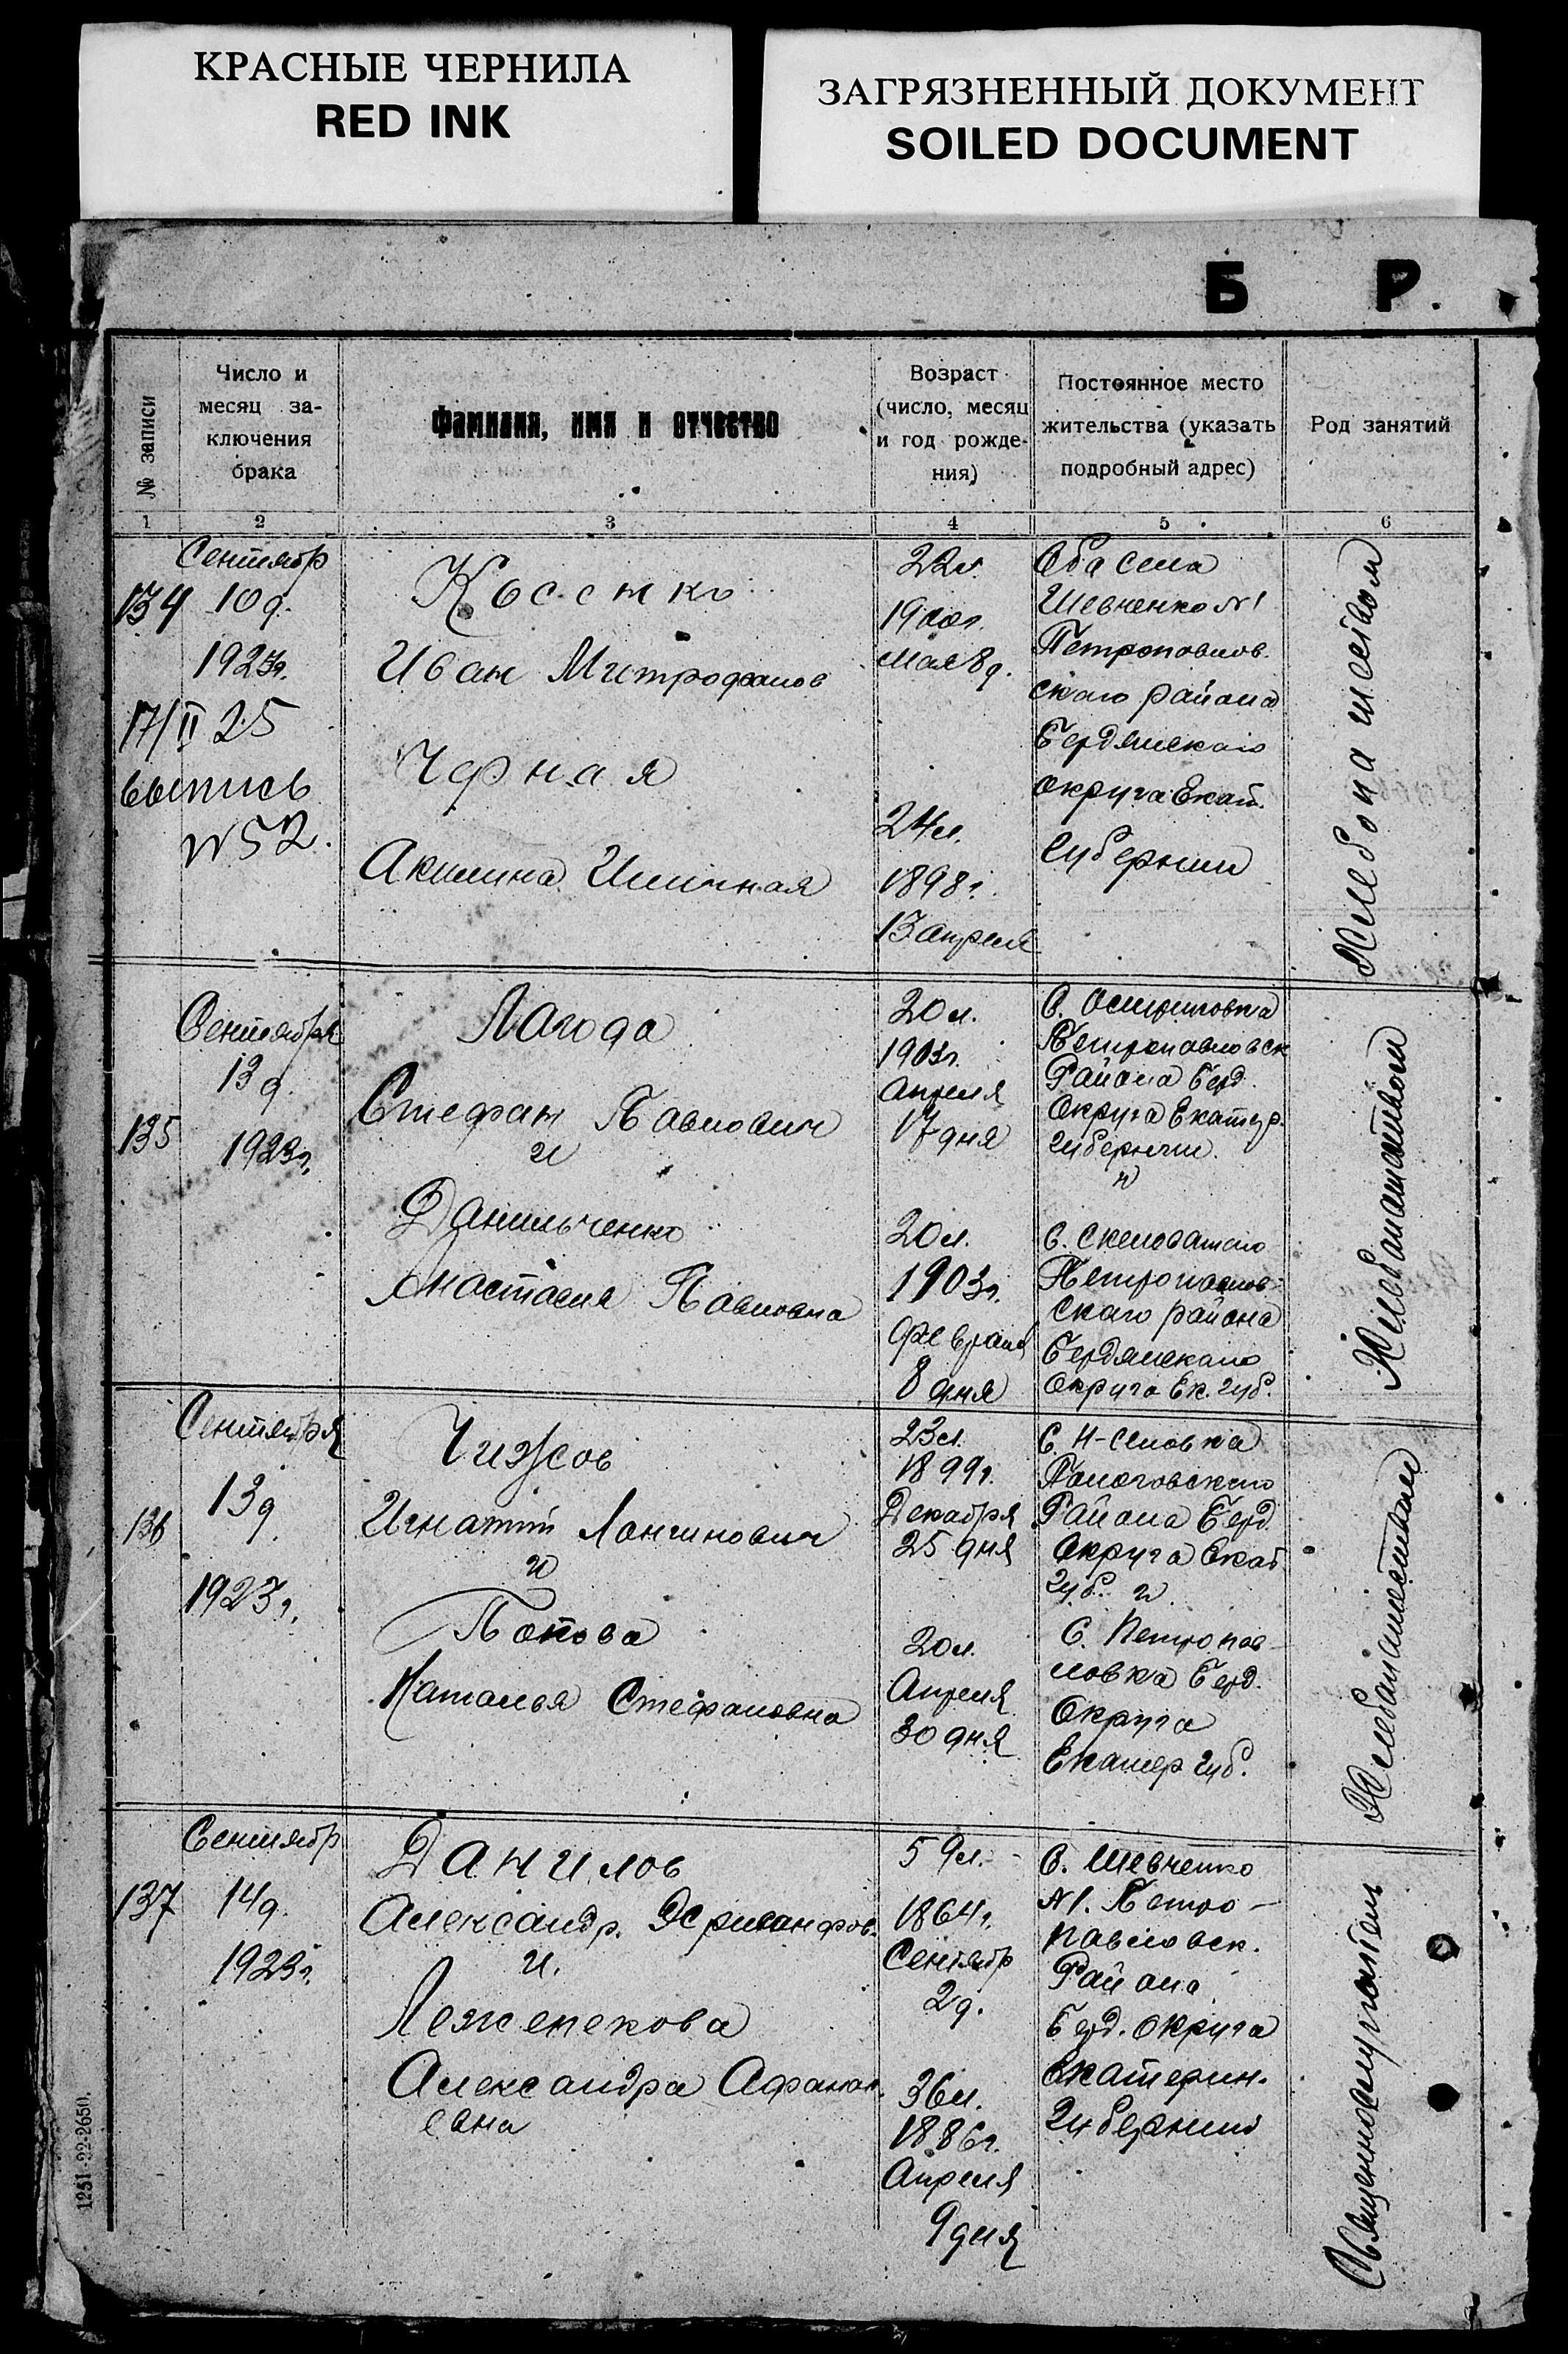 КРАСНЫЕ ЧЕРНИЛА
RED INK
ЗАГРЯЗНЕННЫЙ ДОКУМЕНТ
SOILED DOCUMENT
Б Р.
№ записи
Число и
месяц за-
ключения
брака
Фамилия, имя и отчество
Возраст
(число, месяц
и год рожде-
ния)
Постоянное место
жительства (указать
подробный адрес)
Род занятий
1 2 3 4 5 6
134
Сентябр
10 д.
1923г.
17/II 25
выпись
N 52.
Иван Митрофанов
Черная
Акилина
22л.
1900г.
Мая 8 д.
24л.
1898г.
13 апреля
Оба села
Шевченко N1
Петропавлов.
скаго района
Бердянскаго
округа Екат.
Губернии
Хлебопашеством
135
Сентября
13 д.
1923г.
Лагода
Стефан Павлович
и
Данильченко
Анастасия Павловна
20л.
1903г.
Апреля
17 дня
20л.
1903г.
февраля
8 дня
С.
Петропавловск
Района Берд.
Округа Екатер.
Губернии.
и
С. Скеловатаго
Петропавлов-
скаго района
Бердянскаго
Округа Ек. губ.
Хлебопашеством
136
Сентября
13 д.
1923г.
Чижов
Игнатий Лонгинович
и
Попова
Наталья Стефановна
23л.
1899г.
Декабря
25 дня
20л.
Апреля
30 дня
С.
Района Берд.
Округа Екат
Губ. и
С. Петропав-
ловка Берд.
Округа
Екатер губ.
Хлебопашеством
137
Сентябр
14 д.
1923г.
Данилов
Александр.
и.
Александра Афанас.
евна
59л.
1864г.
Сентябр
2 д.
36л.
1886г.
Апреля
9 дня
С. Шевченко
N1. Петро-
павловск.
Района
Берд. округа
Екатерин.
Губернии
Священнослужитель
1251-22-2650.